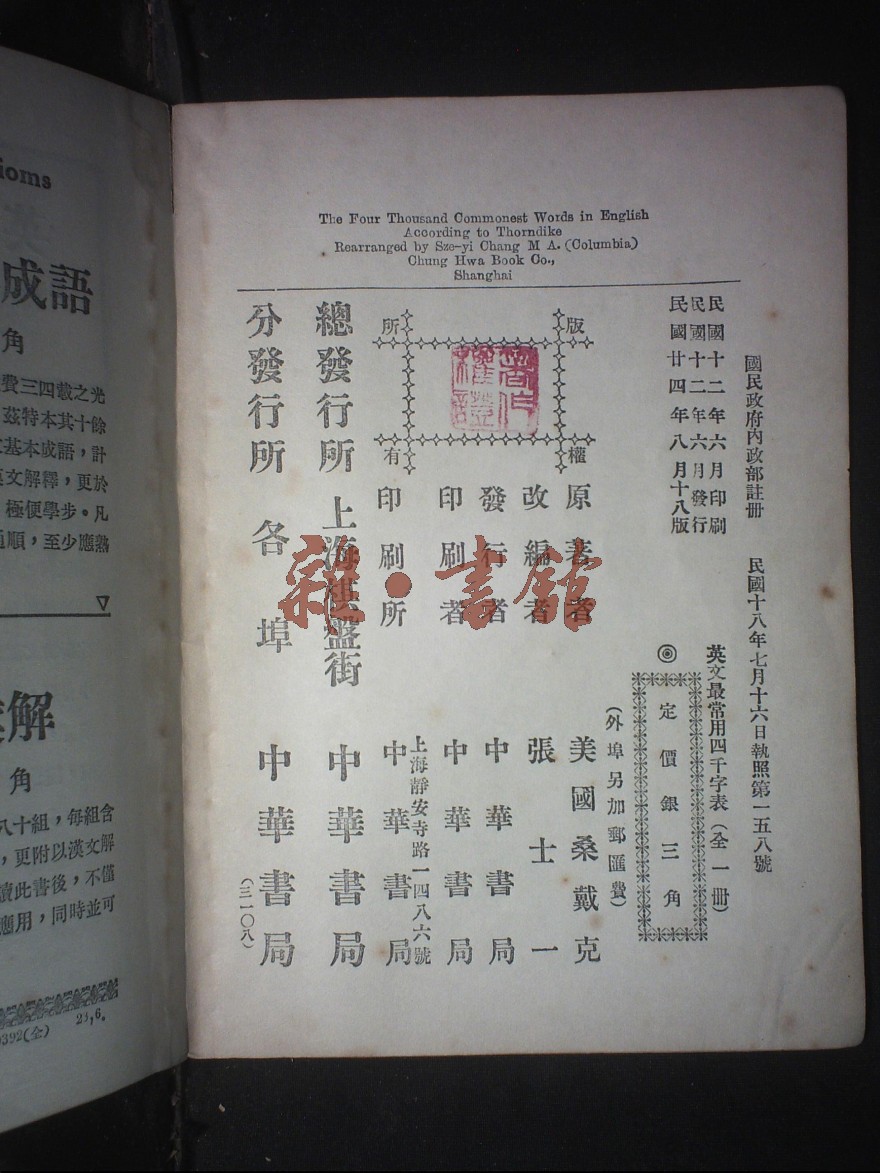 The Four Thousand Commonest Words in English
According to Thorndike
Rearranged by Sze-yi Chang M A. (Columbia)
Chung Hwa Book Co.,
Shanghai
國民政府內政部註冊　民國十八年七月十六日執照第一五八號
民國十二年六月印刷
民國十二年六月發行
民國廿四年八月十八版
英文最常用四千字表（全一冊）
◎定價銀三角
（外埠另加郵匯費）
版權所有
原著者　美國桑戴克
改編者　張士一
發行者　中華書局
印刷者　中華書局
上海靜安寺路一四八六號
印刷所　中華書局
總發行所　上海棋盤街　中華書局
分發行所　各埠　中華書局
（三一〇八）
雜·書館
ioms
成語
角
費三四載之光
茲特本其十餘
基本成語，計
英文解釋，更於
極便學步。凡
通順，至少應熟
解
角
八十組，每組含
，更附以漢文解
讀此書後，不僅
應用，同時並可
392(全)　23,6.